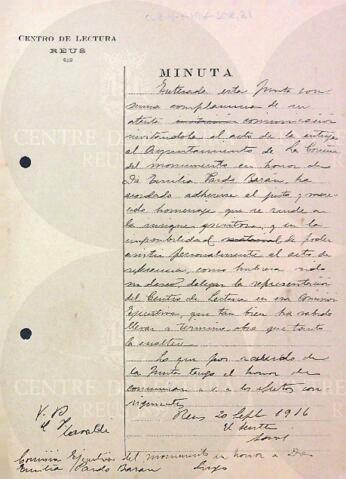 CENTRO DE LECTURA
REUS
MINUTA
Enterada esta Junta con
suma complacencia de su
atenta comunicación
invitándola al acto de la entrega
al Ayuntamiento de La Coruña
del monumento en honor de
Da Emilia Pardo Bazán, ha
acordado adherirse al justo y mere-
cido homenaje que se rinde a
la insigne escritora, y en la
imposibilidad material de poder
asistir personalmente al acto de
referencia, como hubiera sido
su deseo, delegar la representación
del Centro de Lectura en esa Comisión
Ejecutiva, que tan bien ha sabido
llevar a término obra que tanto
la enaltece.
Lo que por acuerdo de
la Junta tengo el honor de
comunicar a V. a los efectos con-
siguientes.
Reus 20 Sept 1916
V. B.
El
El
Comisión Ejecutiva del monumento en honor a Da
Emilia Pardo Bazán